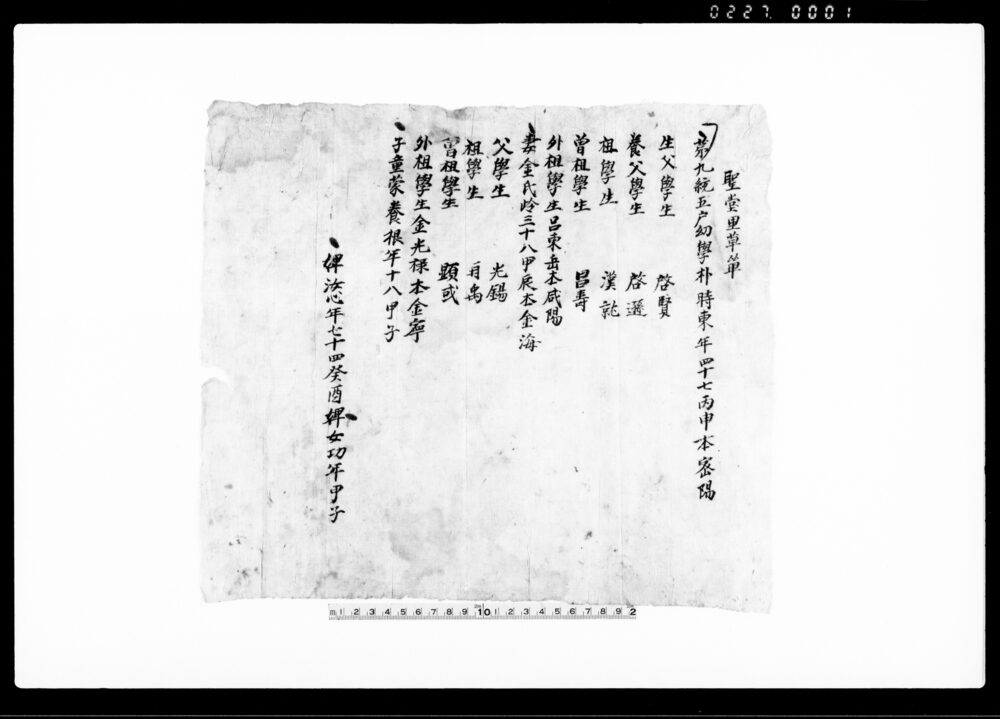 0227. 0001
聖堂里草單
第九統五户幼學朴時東年四十七丙申本密陽
生父學生 啓賢
養父學生 啓暹
祖學生 漢龍
曾祖學生 昌壽
外祖學生呂東岳本咸陽
妻金氏齡三十八甲辰本金海
父學生 光錫
祖學生 禹
曾祖學生 顕或
外祖學生金光榡本金寧
子童蒙養根年十八甲子
婢汝心年七十四癸酉婢女功年甲子
m 1 2 3 4 5 6 7 8 9 10 1 2 3 4 5 6 7 8 9 2